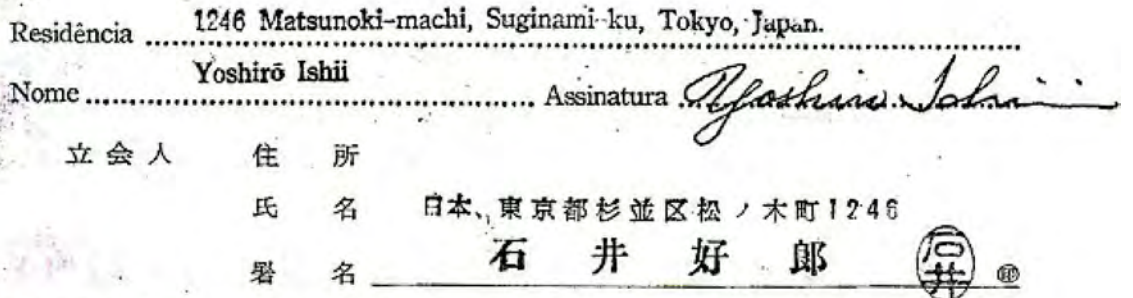 Residência 1246 Matsunoki-machi, Suginami-ku, Tokyo, Japan.
Nome Yoshirō Ishii Assinatura Yoshiro Ishii
立会人 住所
氏名 日本、東京都杉並区松ノ木町1246
署名 石井好郎 石井 ㊞